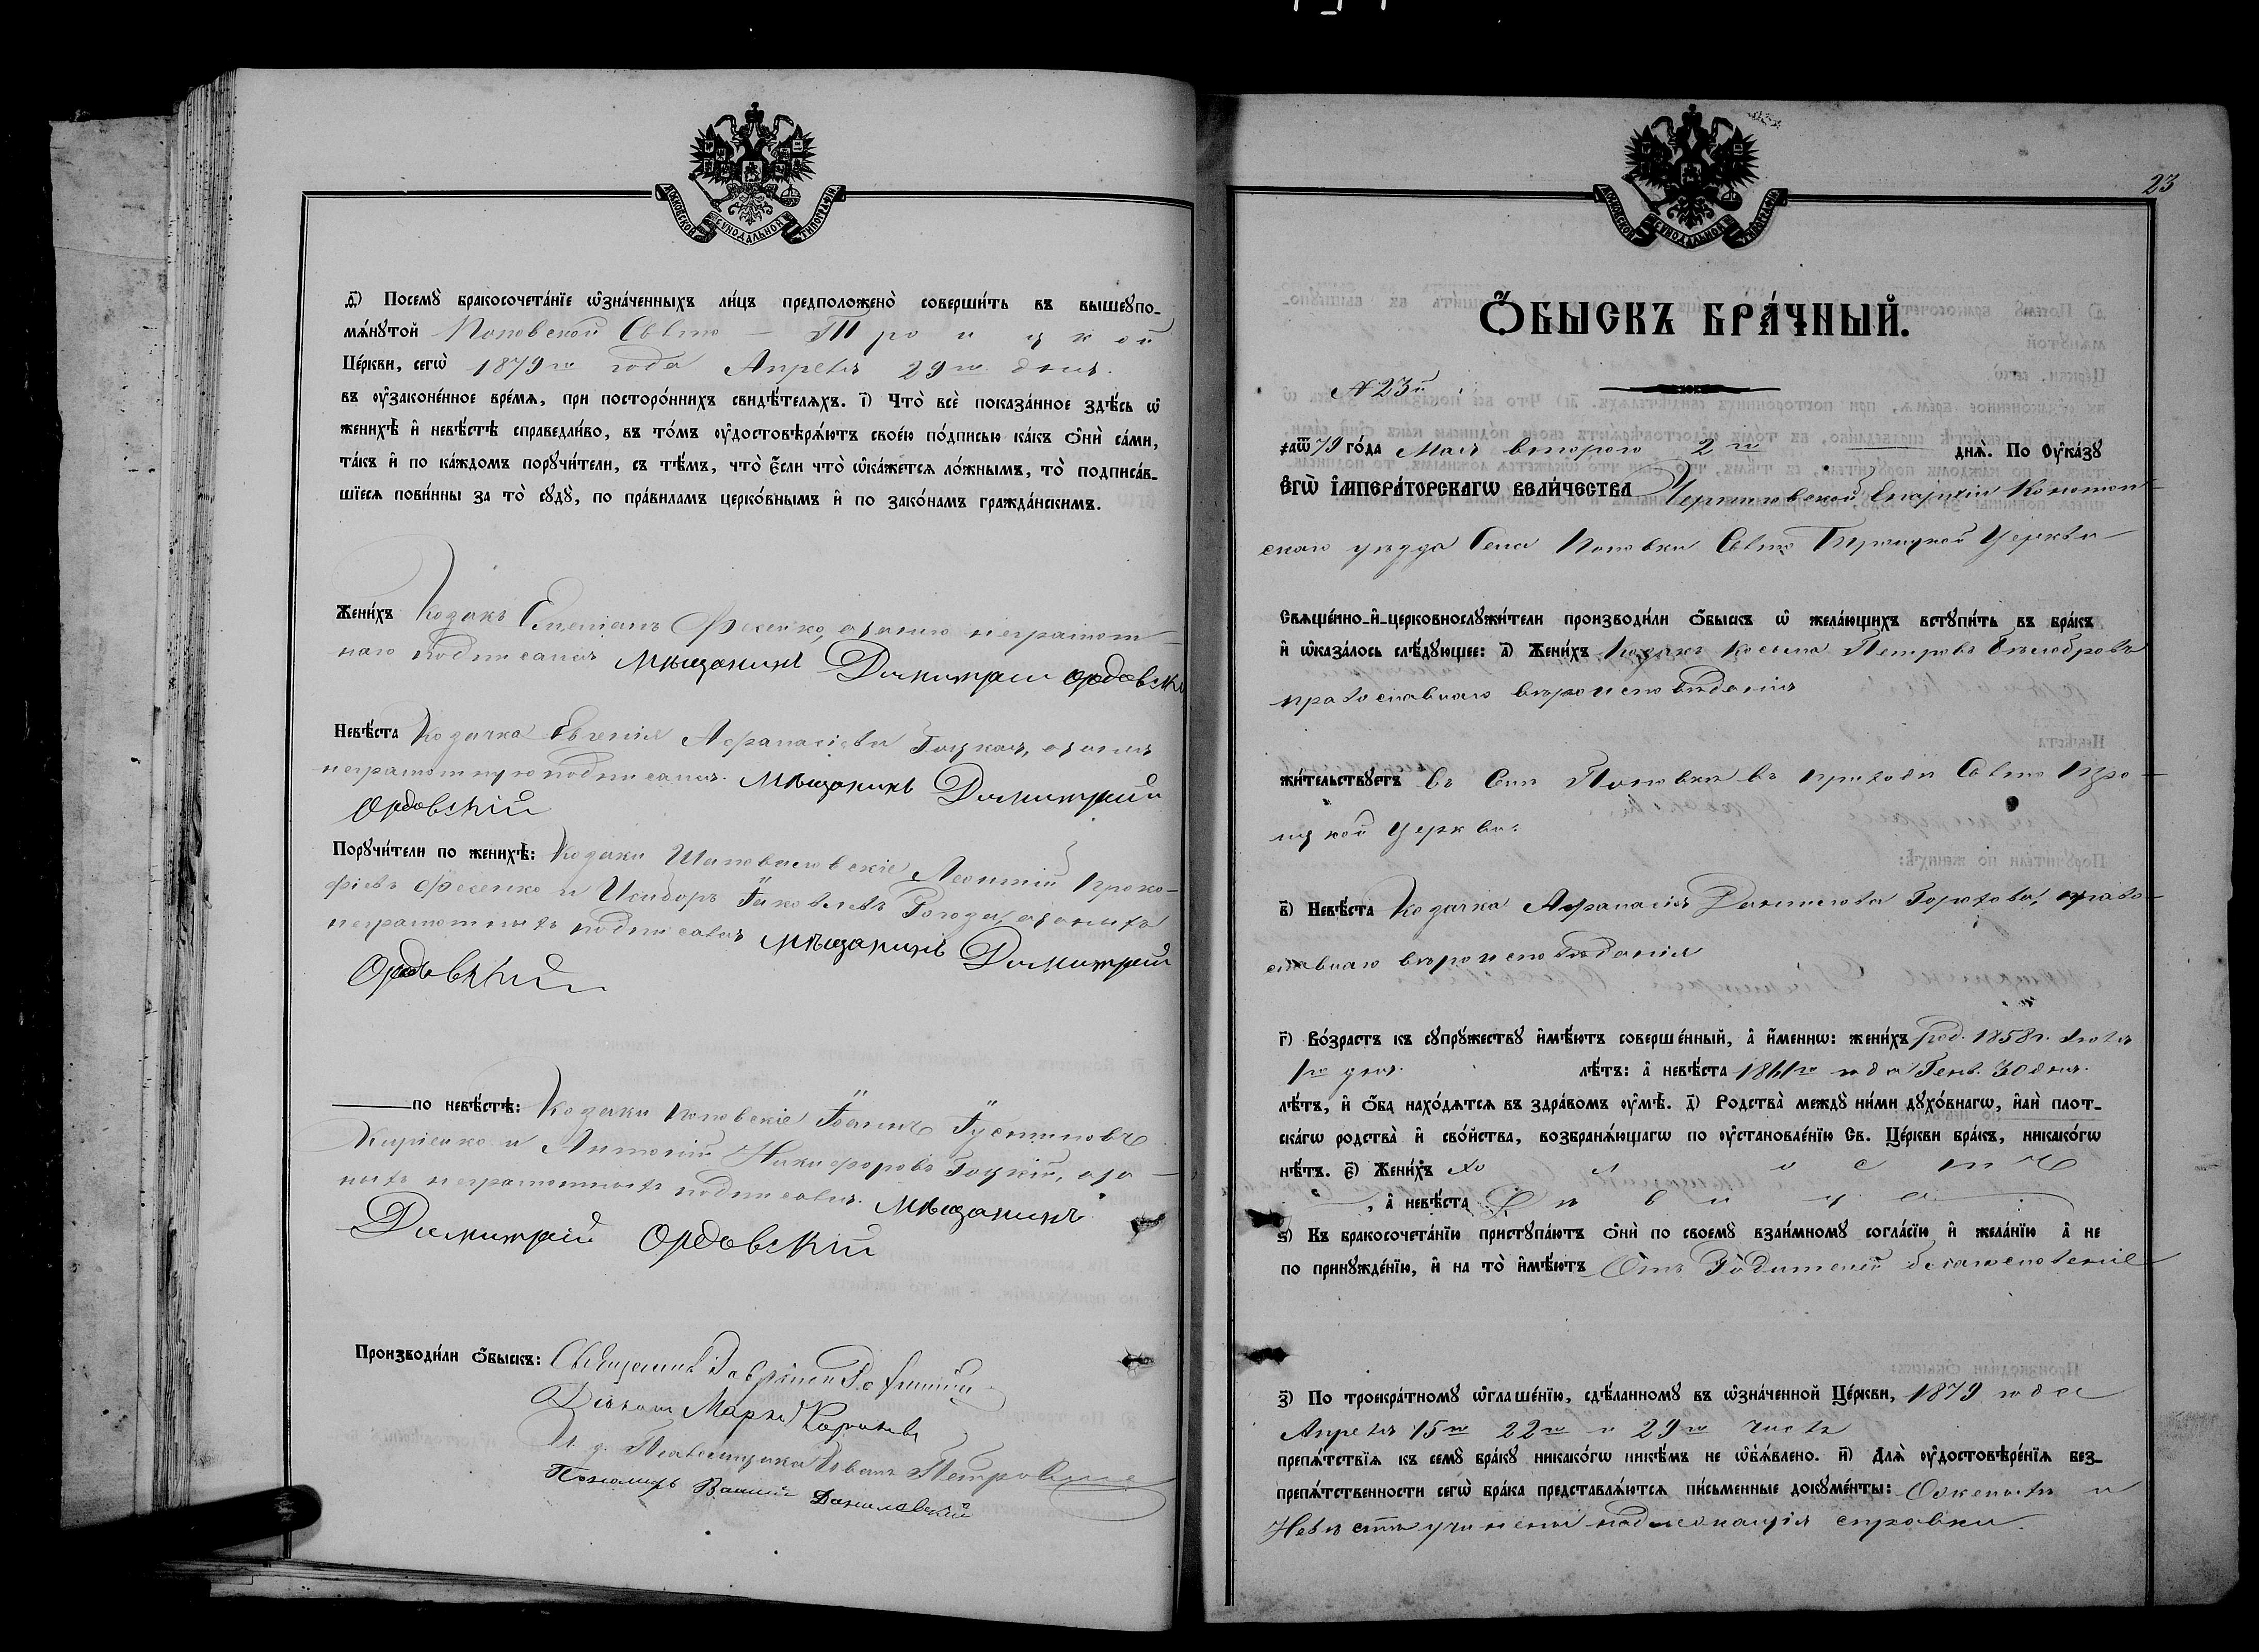 МОСКОВСКОЙ СѴНОДАЛЬНОЙ ТИПОГРАФІИ.
д҃і) Посемꙋ бракосочета́нїе ѡ҆зна́ченныхъ ли́цъ предположено̀ соверши́ть въ вышеꙋпо-
мѧ́нꙋтой Поповской Свѧто - Троицкой
Це́ркви, сегѡ̀ 1879го года Апрѣлѧ 29го днѧ.
въ ᲂу҆законе́нное вре́мѧ, при посторо́ннихъ свидѣ́телѧхъ. і҃) Что̀ всѐ показа́нное здѣ́сь ѡ҆
женихѣ̀ и҆ невѣ́стѣ справедли́во, въ то́мъ ᲂу҆достовѣрѧ́ютъ свое́ю по́дписью ка́къ ѻ҆нѝ са́ми,
та́къ и҆ по ка́ждомъ порꙋчи́тели, съ тѣ́мъ, что̀ є҆́сли что̀ ѡ҆ка́жетсѧ ло́жнымъ, то̀ подписа́в-
шїесѧ пови́нны за то̀ сꙋдꙋ̀, по пра́виламъ церко́внымъ и҆ по зако́намъ гражда́нскимъ.
Жени́хъ Козакъ Емеліанъ Фесенко, а за него неграмот-
наго подписалсѧ мѣщанинъ Димитрій Ордовскій
Невѣ́ста Козачка Евгеніѧ Афанасіева Гоцкаѧ, а за нею
неграмотную подписалсѧ мѣщанинъ Димитрій
Ордовскій
Порꙋчи́тели по женихѣ̀: Козаки Шаповаловскіе Леонтій Проко-
фіевъ Фесенко и Исидоръ Іаковлевъ Рогоза, а за нихъ
неграмотныхъ подписалсѧ мѣщанинъ Димитрій
Ордовскій
по невѣ́стѣ: Козаки Поповскіе Іоаннъ Іустиновъ
Киріенко и Антоній Никифоровъ Гоцкій, а за
нихъ неграмотныхъ подписалсѧ мѣщанинъ
Димитрій Ордовскій
Производи́ли ѻ҆́быскъ: Свѧщенникъ Гавріилъ
Діаконъ Марко
И. д. Псаломщика Иванъ Петровскій
Пономарь Василій Данилевскій
23
МОСКОВСКОЙ СѴНОДАЛЬНОЙ ТИПОГРАФІИ.
Ѻ҆́БЫСКЪ БРА́ЧНЫЙ.
№ 23й
҂аѿ79 го́да Маѧ второго 2го днѧ̀. По ᲂу҆ка́зꙋ
Є҆гѡ̀ І҆мпера́торскагѡ вели́чества Черниговской Епархіи Конотоп-
скаго уѣзда Села Поповки Свѧто Троицкой Церкви
Свѧще́нно-и҆-церковнослꙋжи́тели производи́ли ѻ҆́быскъ ѡ҆ жела́ющихъ встꙋпи́ть въ бра́къ
и҆ ѡ҆каза́лось слѣ́дꙋющее: а҃) Жени́хъ Козакъ Косьма Петровъ Бѣлобровъ
православнаго вѣроисповѣданіѧ
жи́тельствꙋетъ въ Селѣ Поповки въ приходѣ Свѧто Тро-
ицкой Церкви.
в҃) Невѣ́ста Козачка Афанасіѧ Данилова Горохова, право-
славнаго вѣроисповѣданіѧ
г҃) Во́зрастъ къ сꙋпрꙋ́жествꙋ и҆мѣ́ютъ соверше́нный, а҆ и҆́менно: жени́хъ род. 1858г. Іюлѧ
1го днѧ. лѣ́тъ: а҆ невѣ́ста 1861го года Генв. 30 днѧ.
лѣ́тъ, и҆ ѻ҆́ба нахо́дѧтсѧ въ здра́вомъ ᲂу҆мѣ̀. д҃) Родства̀ междꙋ̀ ни́ми дꙋхо́внагѡ, и҆лѝ плот-
ска́гѡ родства̀ и҆ сво́йства, возбранѧ́ющагѡ по ᲂу҆становле́нїю Св. Це́ркви бра́къ, никако́гѡ
нѣ́тъ. є҃) Жени́хъ холостъ
, а҆ невѣ́ста Дѣвица
ѕ҃) Къ бракосочета́нїю пристꙋпа́ютъ ѻ҆нѝ по своемꙋ̀ взаи́мномꙋ согла́сїю и҆ жела́нїю а҆ не
по принꙋжде́нїю, и҆ на то̀ и҆мѣ́ютъ Отъ Родителей благословеніе
з҃) По троекра́тномꙋ ѡ҆глаше́нїю, сдѣ́ланномꙋ въ ѡ҆зна́ченной Це́ркви, 1879 года
Апрѣлѧ 15го 22го и 29го числъ
препѧ́тствїѧ къ семꙋ̀ бра́кꙋ никако́гѡ никѣ́мъ не ѡ҆б̾ѧ́влено. и҃) Длѧ̀ ᲂу҆достовѣре́нїѧ без-
препѧ́тственности сегѡ̀ бра́ка представлѧ́ютсѧ пи́сьменные докꙋме́нты: О женихѣ и
Невѣстѣ учинены надлежащіѧ справки.